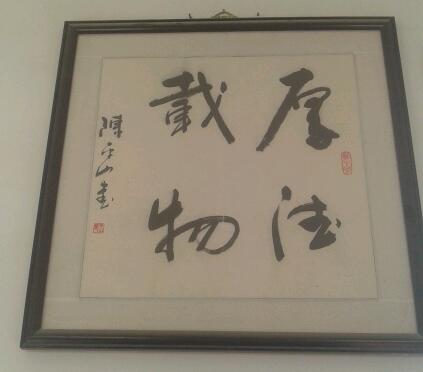 厚德
載物
陳山書